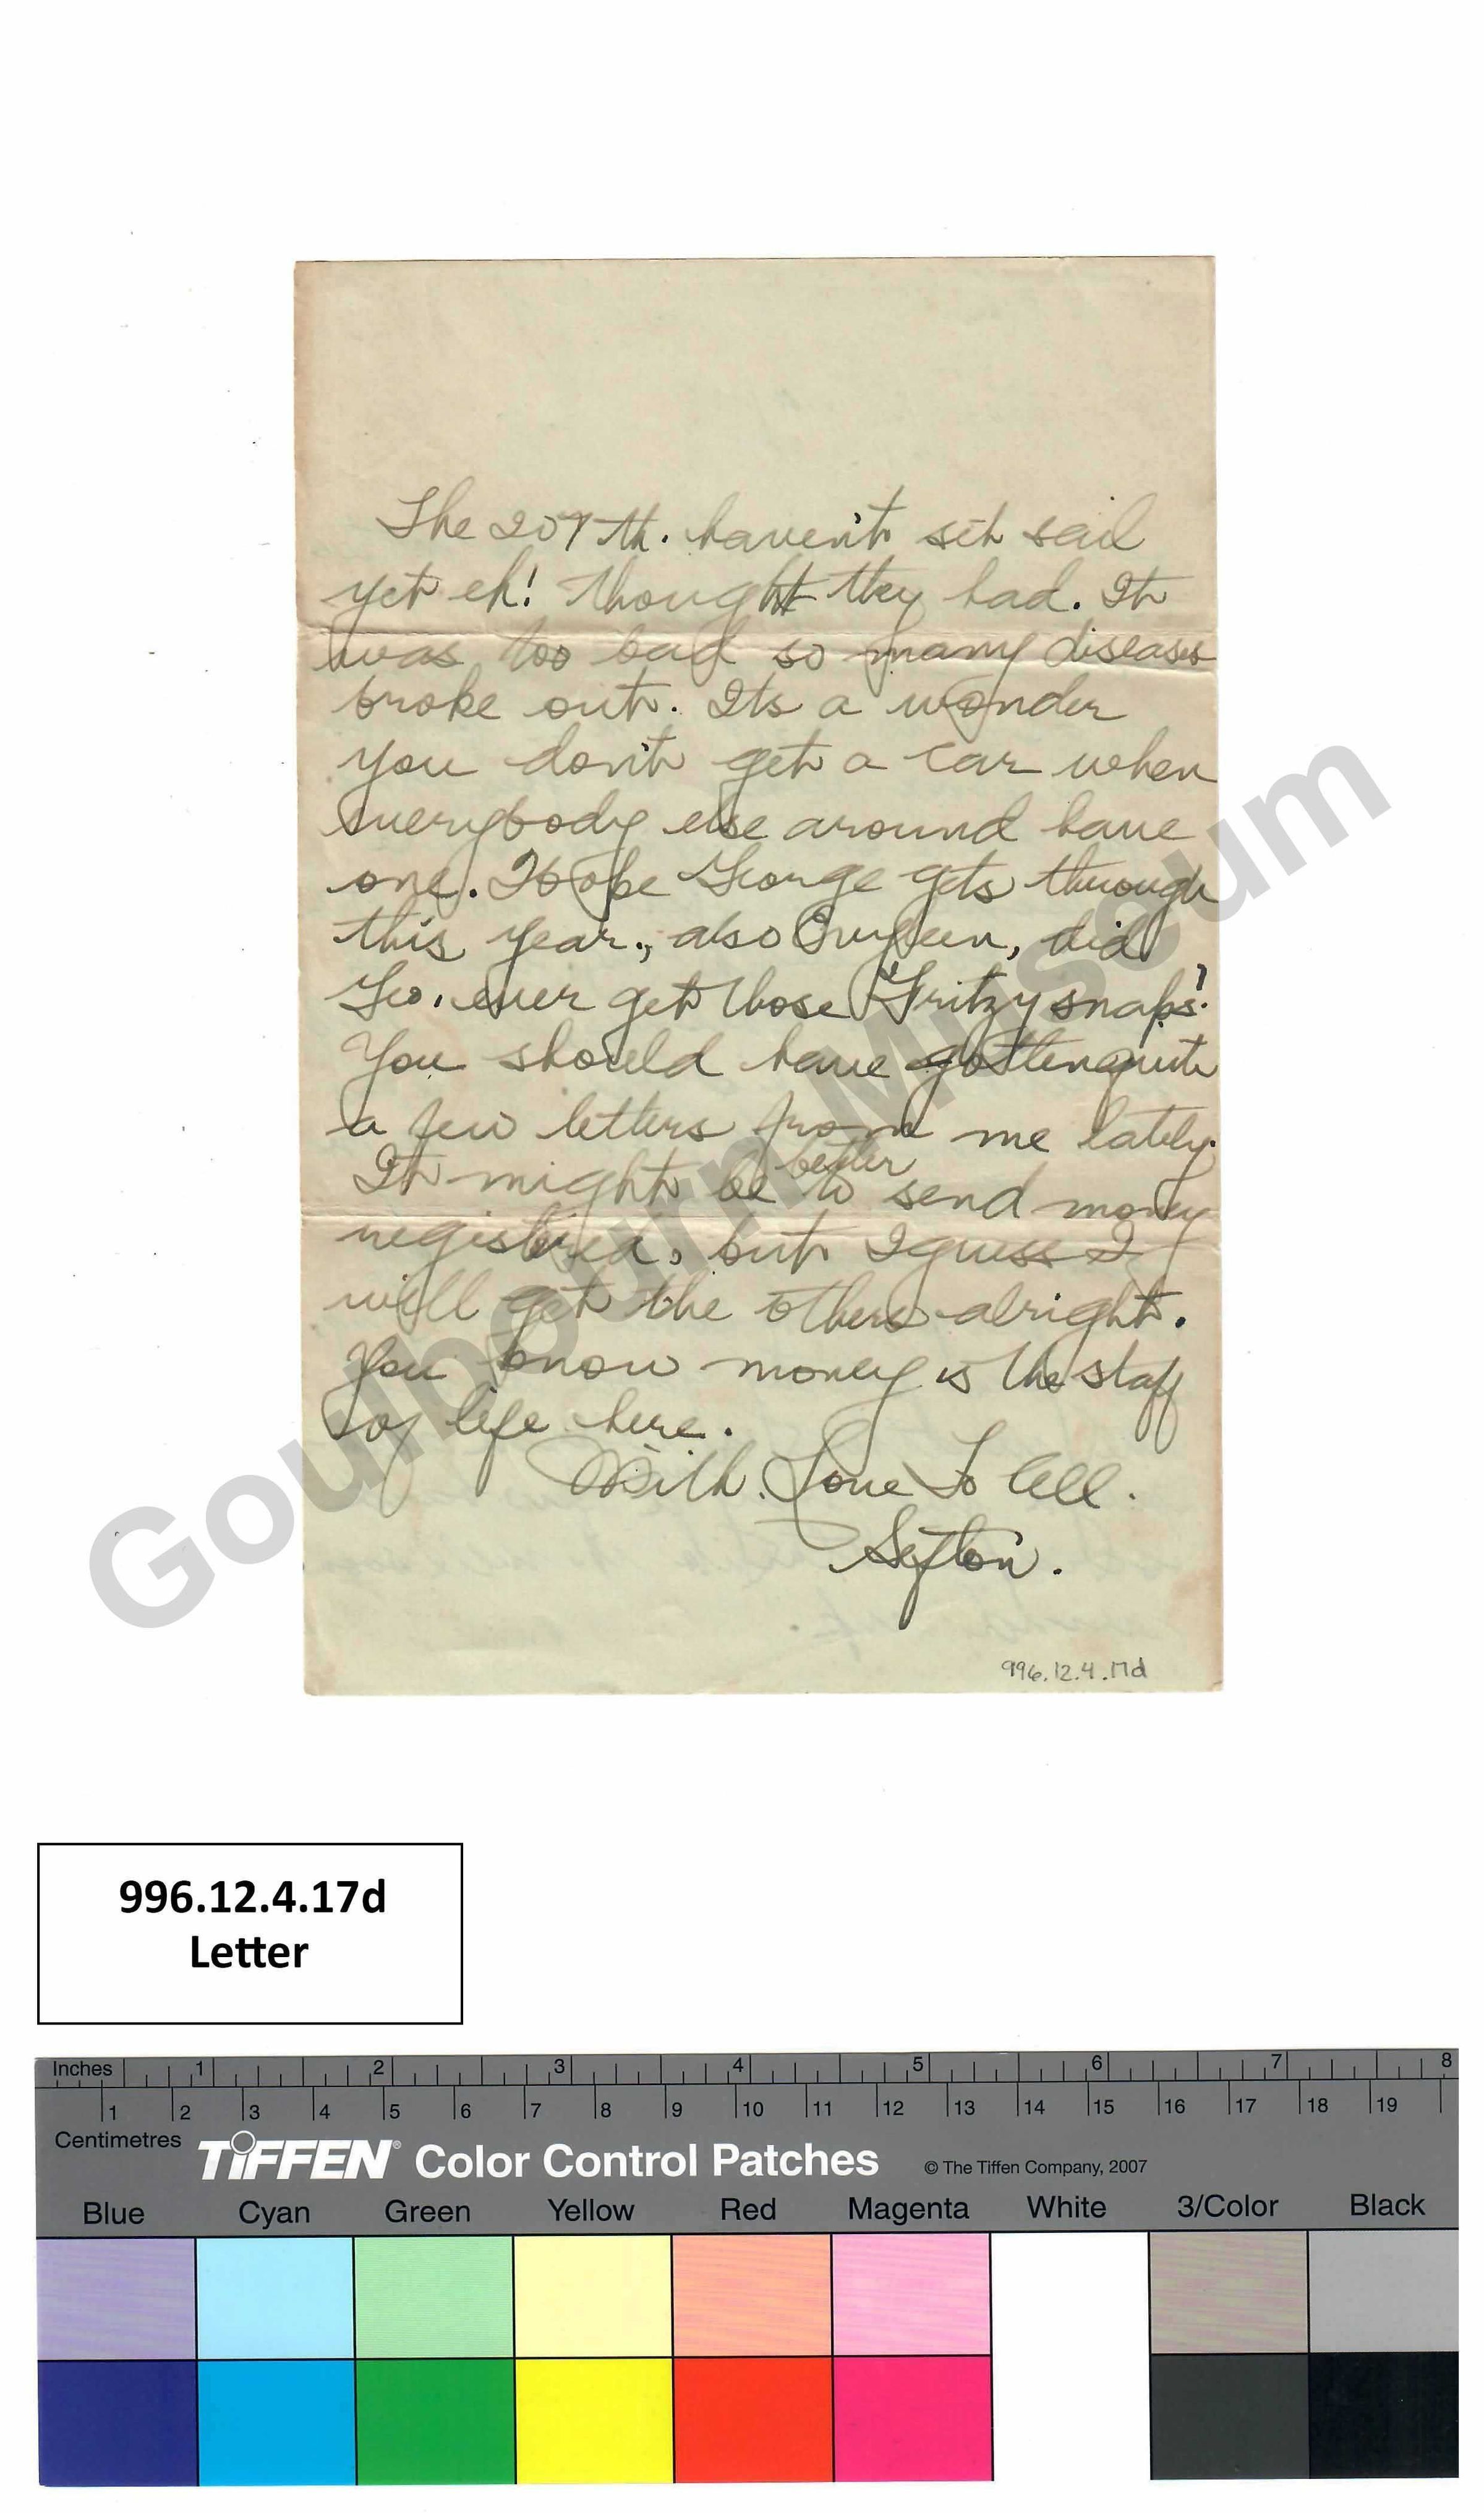 The 207th. haven't set sail
yet eh! Thought they had. It
was too bad so many diseases
broke out. Its a wonder
you don't get a car when
everybody else around have
one. Hope George gets through
this year., also did
Geo. ever get those "Fritzy snaps'.
You should have gotten quite
a few letters from me lately.
It might be better to send money
registered, but I guess I
will get the others alright.
You know money is the staff
of life here.
With. Love To All.
Sefton.
996.12.4.17d
Goulbourn Museum
996.12.4.17d
Letter
Inches 1 2 3 4 5 6 7 8
1 2 3 4 5 6 7 8 9 10 11 12 13 14 15 16 17 18 19
Centimetres
TIFFEN® Color Control Patches © The Tiffen Company, 2007
Blue Cyan Green Yellow Red Magenta White 3/Color Black